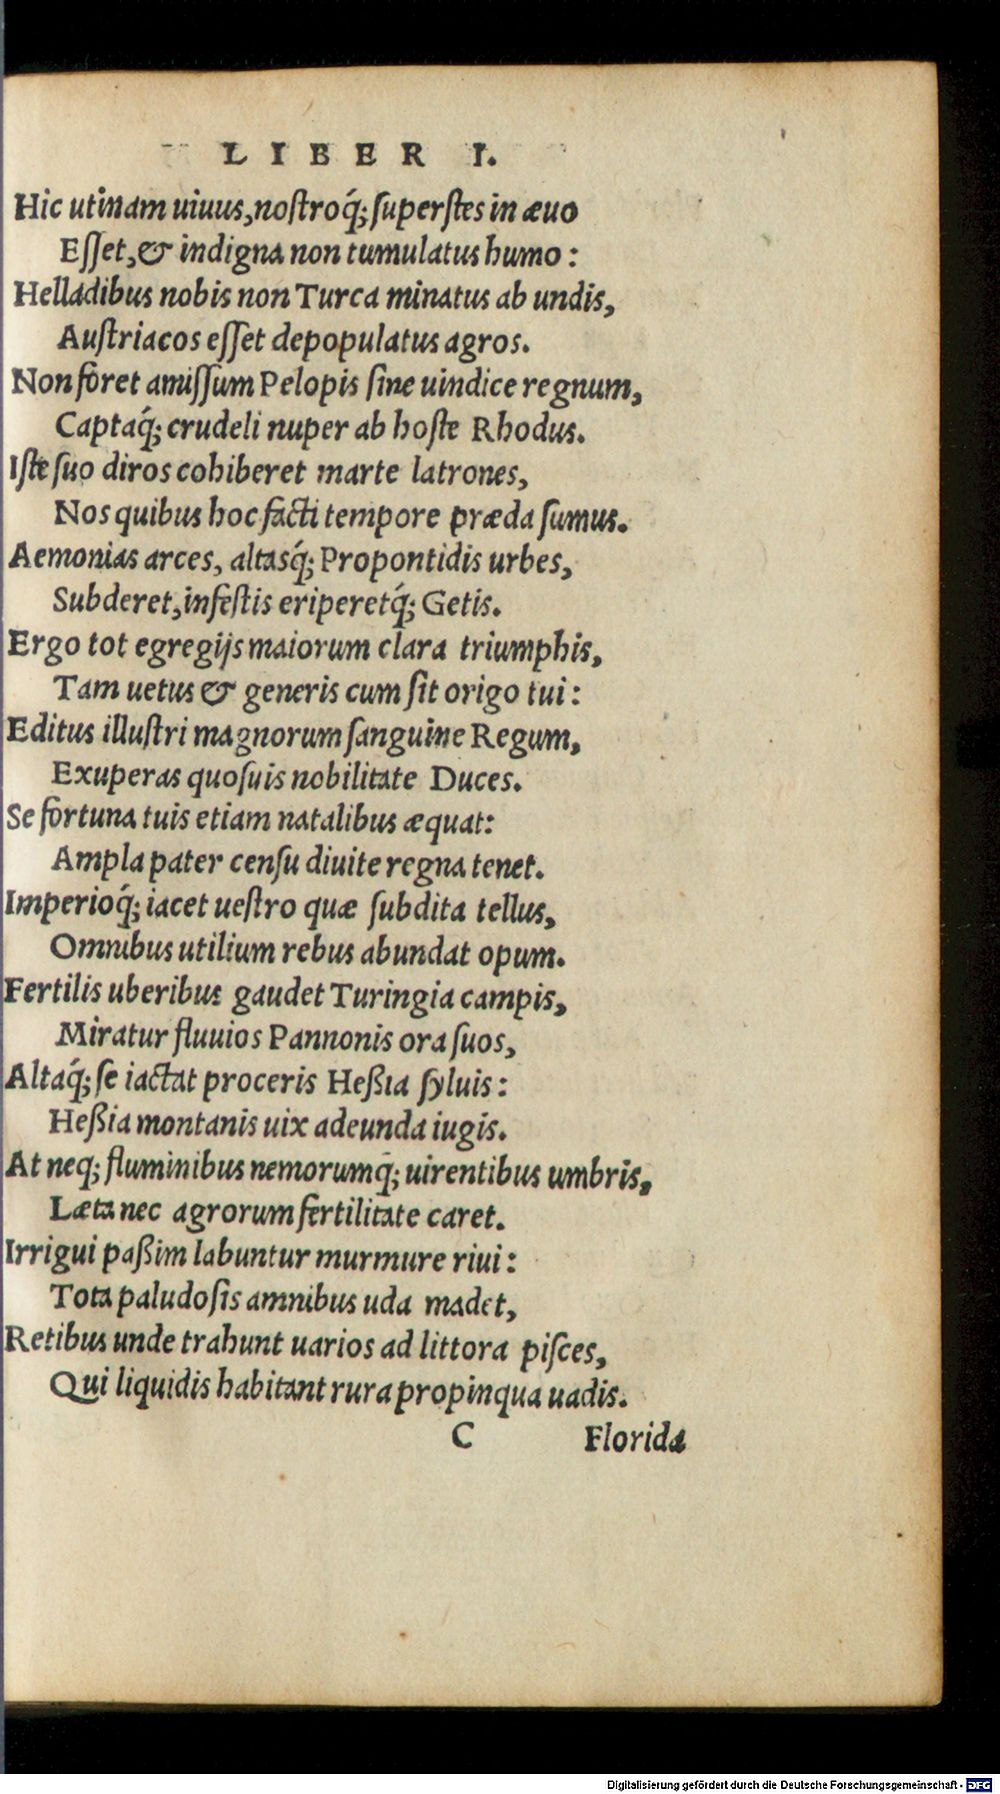 LIBER I.
Hic utinam uiuus, nostroq́; superstes in æuo
Esset, & indigna non tumulatus humo:
Helladibus nobis non Turca minatus ab undis,
Austriacos esset depopulatus agros.
Non foret amissum Pelopis sine uindice regnum,
Captaq́; crudeli nuper ab hoste Rhodus.
Iste suo diros cohiberet marte latrones,
Nos quibus hoc facti tempore præda sumus.
Aemonias arces, altasq́; Propontidis urbes,
Subderet, infestis eriperetq́; Getis.
Ergo tot egregijs maiorum clara triumphis,
Tam uetus & generis cum sit origo tui:
Editus illustri magnorum sanguine Regum,
Exuperas quosuis nobilitate Duces.
Se fortuna tuis etiam natalibus æquat:
Ampla pater censu diuite regna tenet.
Imperioq́; iacet uestro quæ subdita tellus,
Omnibus utilium rebus abundat opum.
Fertilis uberibus gaudet Turingia campis,
Miratur fluuios Pannonis ora suos,
Altaq́; se iactat proceris Heßia syluis:
Heßia montanis uix adeunda iugis.
At neq; fluminibus nemorumq́; uirentibus umbris,
Læta nec agrorum fertilitate caret.
Irrigui paßim labuntur murmure riui:
Tota paludosis amnibus uda madet,
Retibus unde trahunt uarios ad littora pisces,
Qui liquidis habitant rura propinqua uadis.
C Florida
Digitalisierung gefördert durch die Deutsche Forschungsgemeinschaft - DFG